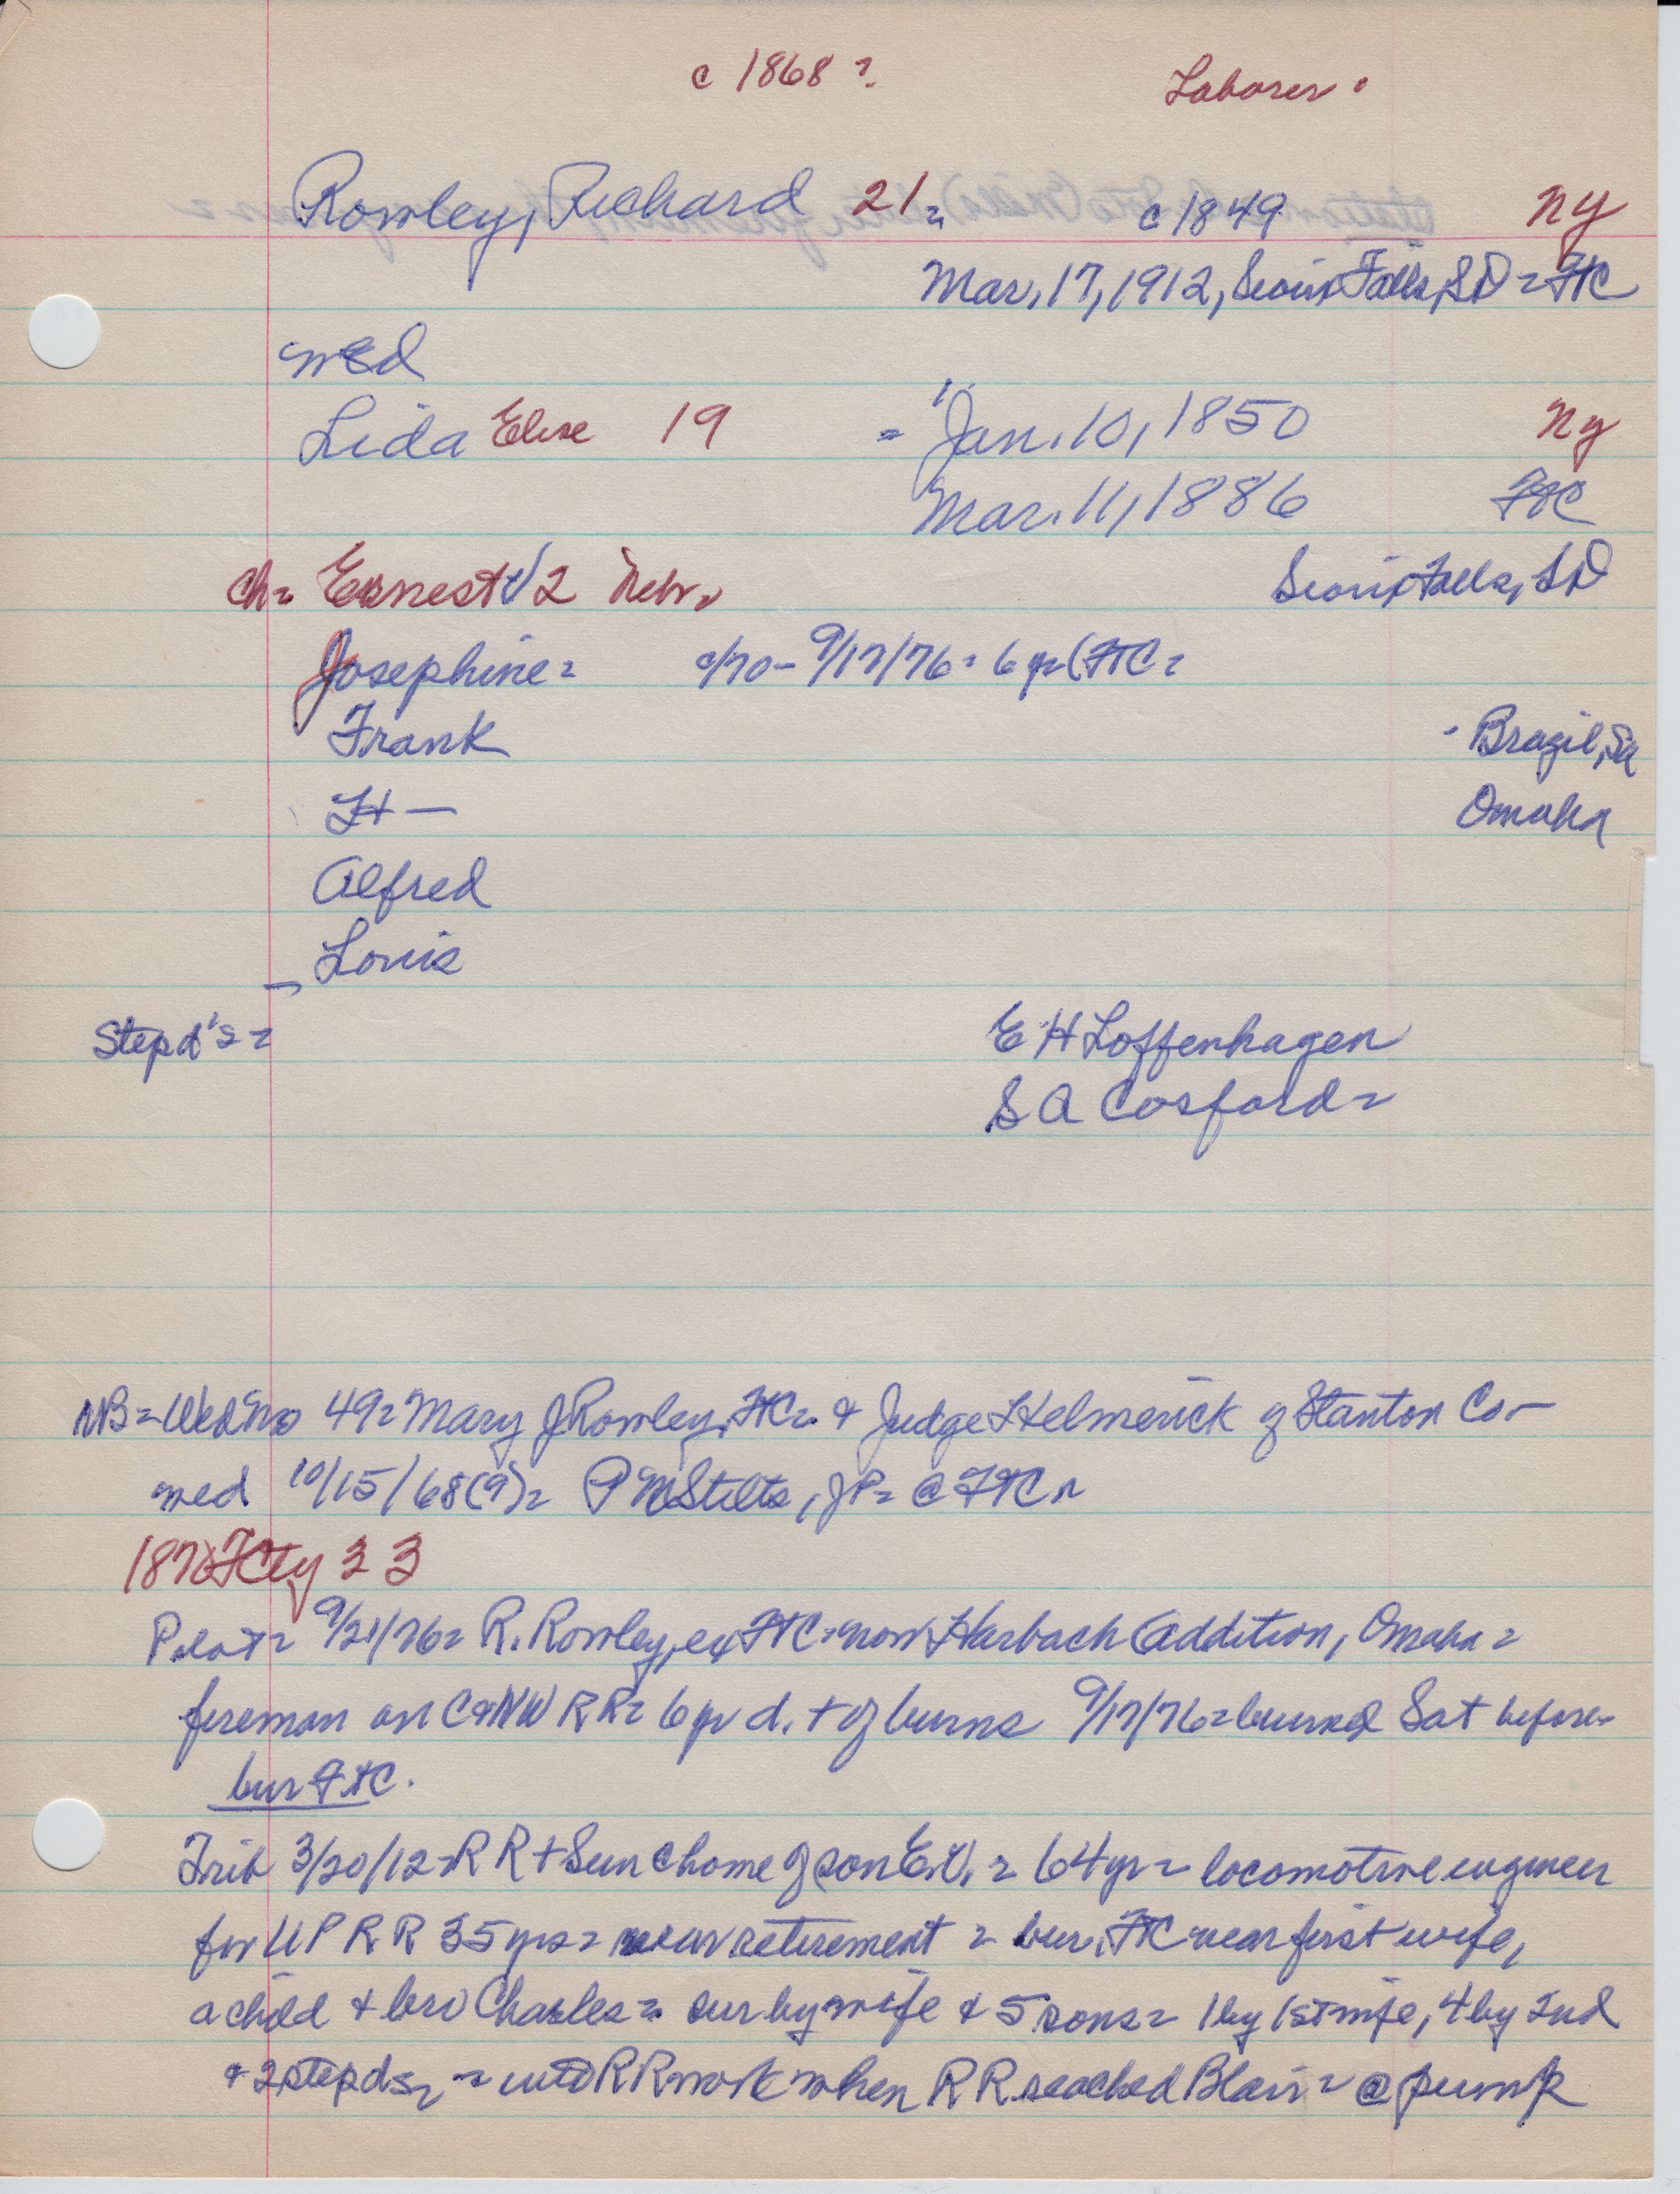 c 1868 ? Laborer.
Rowley, Richard 21 = c 1849 NY
Mar. 17, 1912, Sioux Falls, SD = FtC
wed
Lida Elise 19 = Jan. 10, 1850 NY
Mar. 11, 1886 FtC
ch = Ernest 1/2 Nebr. Sioux Falls, SD
Josephine = c/70 - 9/17/76 = 6 yr (FtC =
Frank Brazil, SA
H — Omaha
Alfred
Louis
Step d's = E H Loffenhagen
S A Cosford =
NB = Wed No 49 = Mary J Rowley, FtC = & Judge Helmerick of Stanton Co -
wed 10/15/68(9) = P M Stilts, JP = @ FtC
187 FCty 33
Pilot = 9/21/76 = R. Rowley, ex FtC = now Harbach Addition, Omaha =
fireman on C&NW RR = 6 yr d. of burns 9/17/76 = burned Sat before -
bur FtC.
Trib 3/20/12 = R R + Sun @ home of son E. = 64 yr = locomotive engineer
for U P R R 35 yrs = near retirement = bur. FtC near first wife,
a child & bro Charles = sur by wife & 5 sons = 1 by 1st wife, 4 by 2nd
& 2 step ds = into RR work when RR reached Blair = @ pump